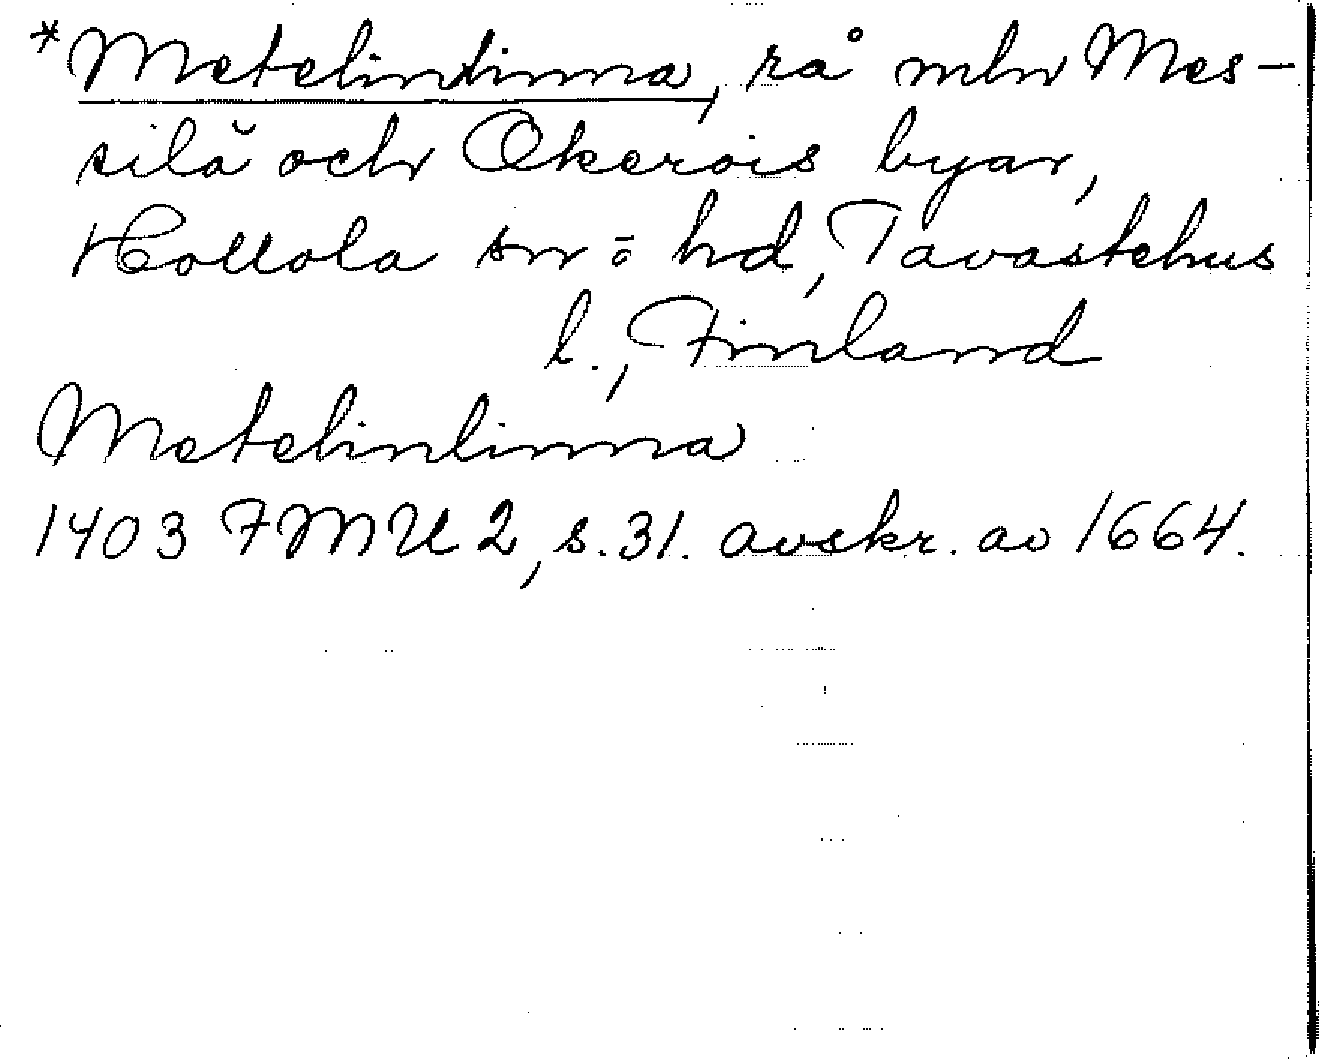 *Metelinlinna, rå mln Mes-
silä och Okerois byar,
Hollola sn ō hd, Tavastehus
l., Finland
Metelinlinna
1403 FMU 2, s. 31. avskr. av 1664.